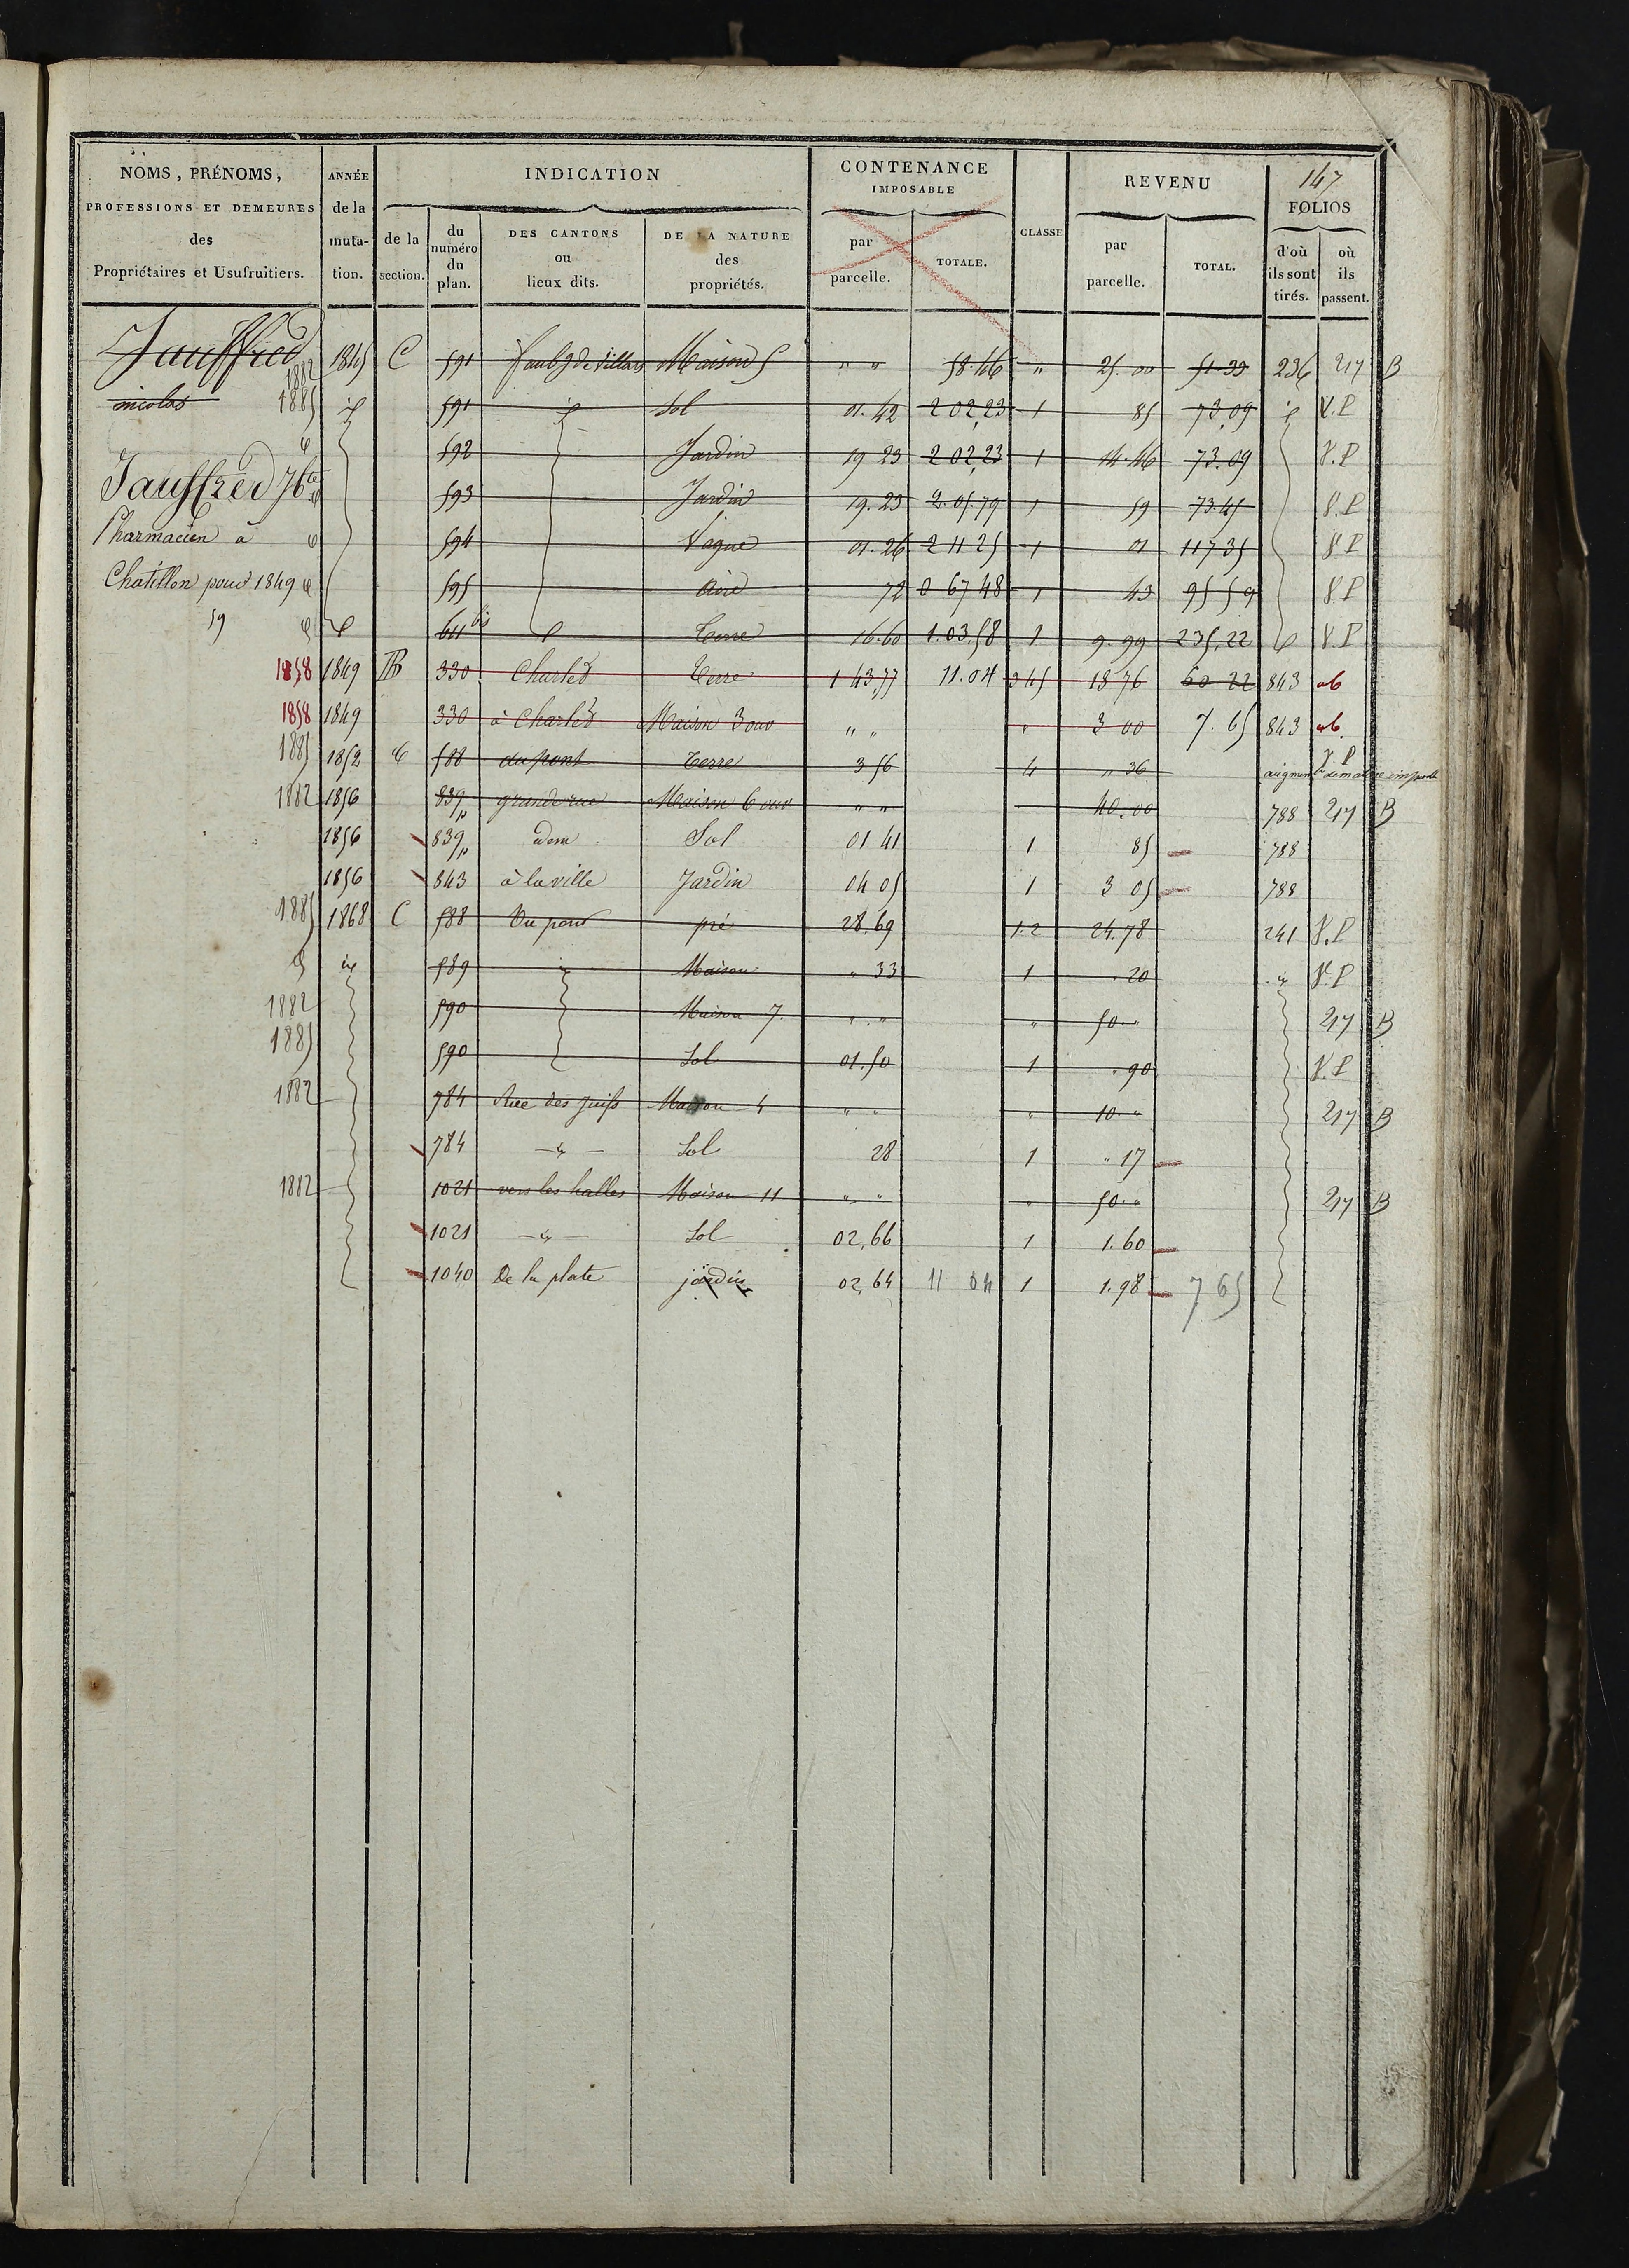 147
NOMS, PRÉNOMS, PROFESSIONS ET DEMEURES des Propriétaires et Usufruitiers.
ANNÉE de la muta-tion.
INDICATION
de la section.
du numéro du plan.
DES CANTONS ou lieux dits.
DE LA NATURE des propriétés.
CONTENANCE IMPOSABLE
par parcelle.
TOTALE.
CLASSE
REVENU
par parcelle.
TOTAL.
FOLIOS
d'où ils sont tirés.
où ils passent.
Jauffred 1882 1845 C 591 faubg de Villars Maison 5 " " 58.46 " 25.00 51.33 236 217 B
nicolas 1885 id 591 id Sol 01.42 2 02,23 1 85 73,09 id V.P
592 Jardin 19 23 2 02,23 1 14.46 73.09 V.P
Jauffred 593 Jardin 19.23 2.05.79 1 59 73.45 V.P
Pharmacien à 594 Vague 01.26 2 11 25 1 01 117 35 V.P
Chatillon pour 1849 595 Aire 72 0 67 48 1 43 95 59 V.P
59 611 bis Terre 16.60 1.03.58 1 9.99 235,22 V.P
1858 1849 330 Charles Terre 1 43,77 11.04 345 18 76 60 22 843
1858 1849 330 à Charles Maison 3 ouv " " " 3 00 7.65 843
1885 1852 C 588 du pont Terre 3 56 4 " 36 V.P
1882 1856 839p grande rue Maison 6 ouv " " 40.00 788 217 B
1856 839p idem Sol 01 41 1 85 788
1856 843 à la ville Jardin 04 05 1 3 05 788
1885 1868 C 588 Du pont pré 28,69 1.2 24.78 241 V.P
589 Maison " 33 1 . 20 V.P
1882 590 Maison 7. " . " " 50 " 217 B
1885 590 Sol 01.50 1 . 90 V.P
1882 784 Rue des juifs Maison 4 " " " 10 " 217 B
784 Sol 28 1 " 17
1882 1021 vers les halles Maison 11 " " " 50 " 217 B
1021 Sol 02,66 1 1.60
1040 De la plate jardin 02,64 11 04 1 1.98 7 65